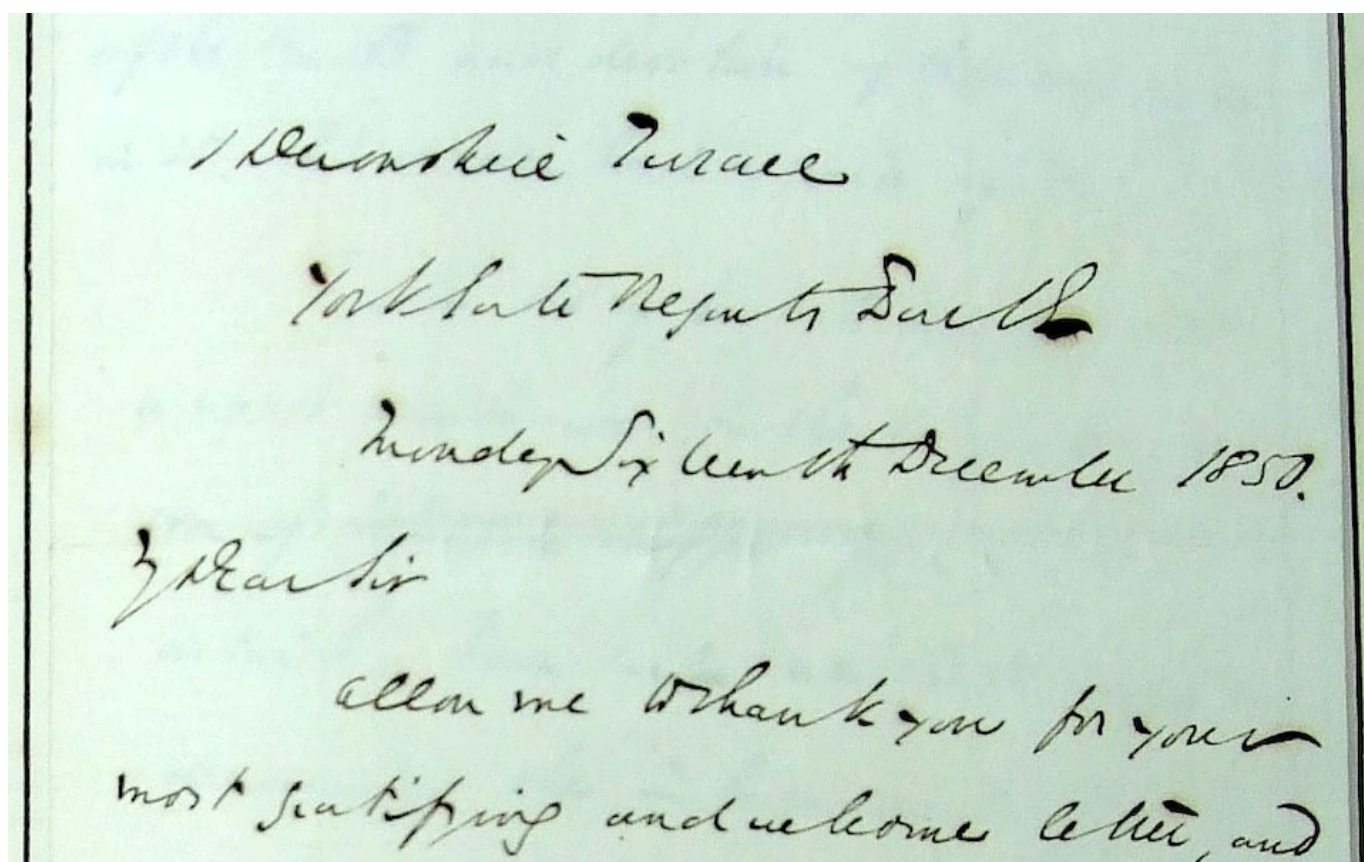 1 Devonshire Terrace
York Gate Regents Park
Monday Sixteenth December 1850.
My Dear Sir
Allow me to thank you for your
most gratifying and welcome letter, and